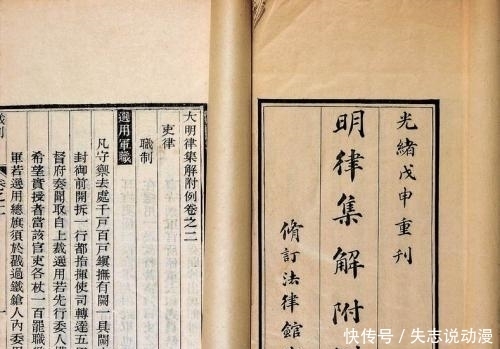 光緒戊申重刊
明律集解附
脩訂法律館
大明律集解附例卷之二
吏律
職制
選用軍職
凡守禦去處千戶百戶鎭撫有闕一具闕
封御前開拆一行都指揮使司轉達五
督府奏聞取自上裁選用若先行委人
希望實授者當該官吏各杖一百罷職
軍若選用總旗須於戳過鐵鎗人內委用
卷之二
快传号／失志说动漫